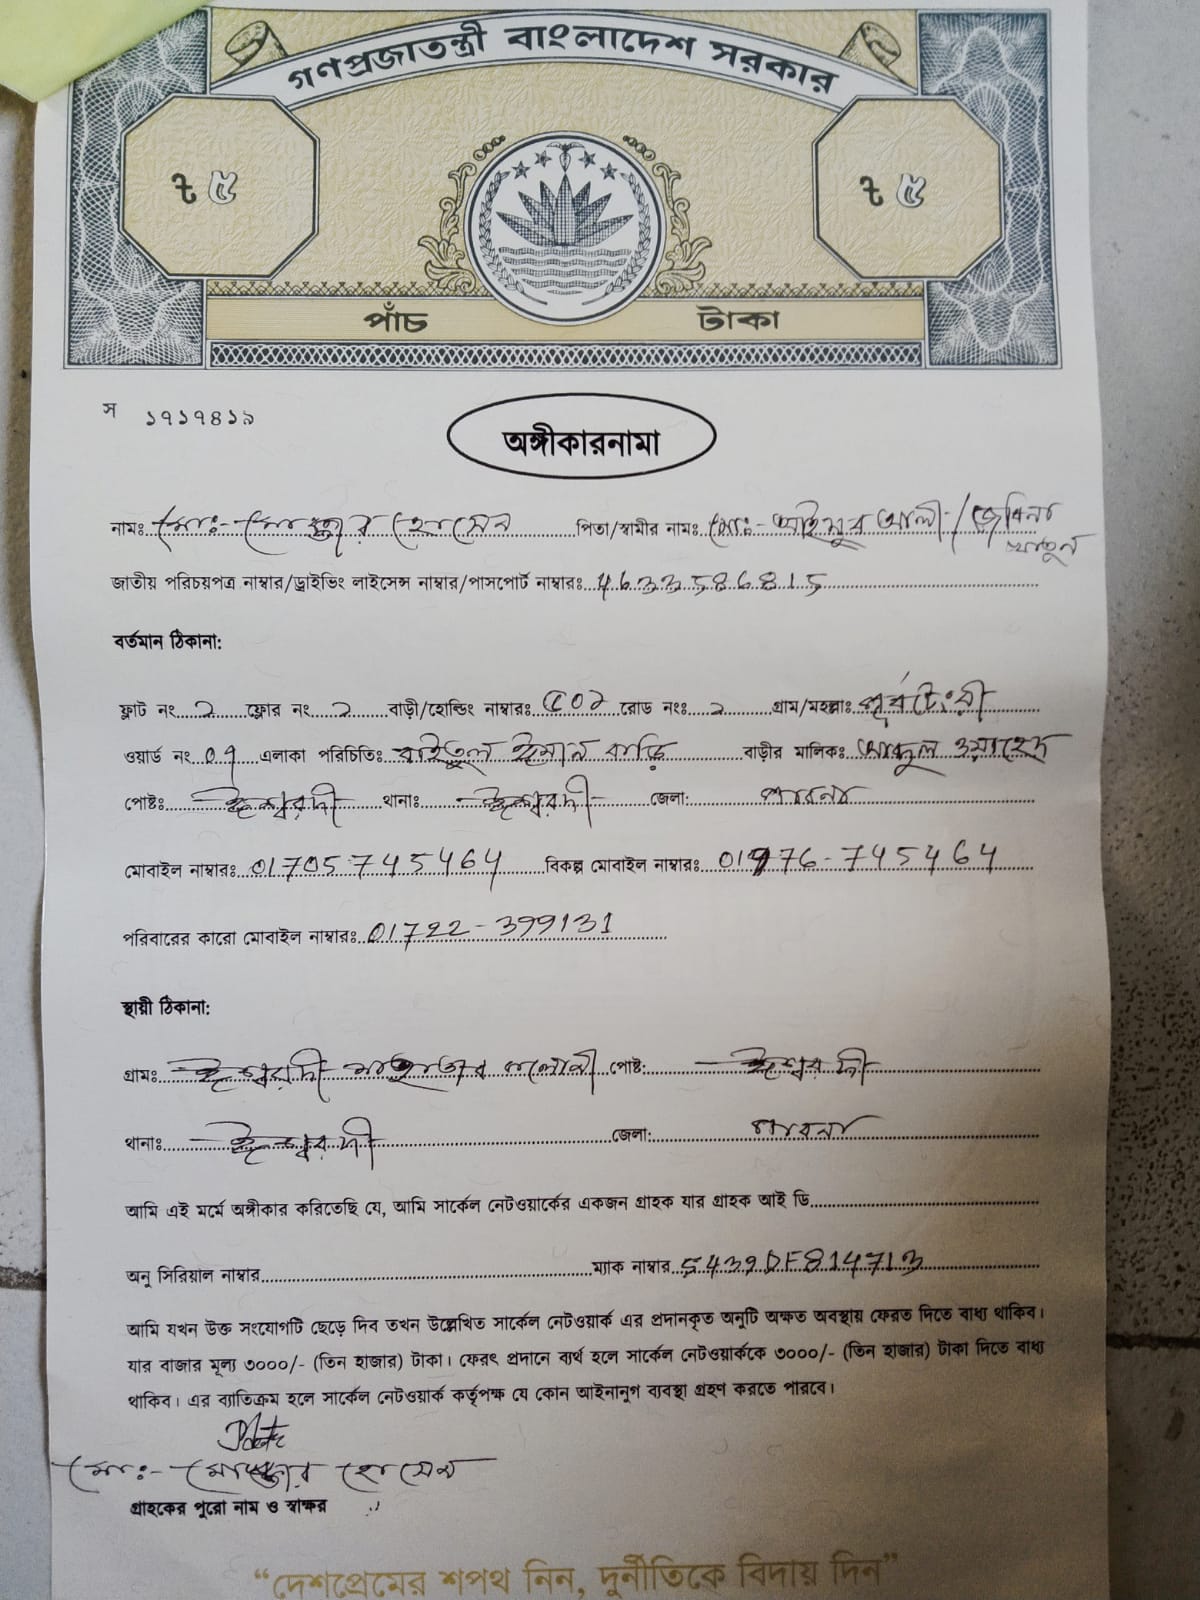 গণপ্রজাতন্ত্রী বাংলাদেশ সরকার
৳ ৫ ৳ ৫
পাঁচ টাকা
স ১৭১৭৪১৯
অঙ্গীকারনামা
নামঃ মোঃ- হোসেন পিতা/স্বামীর নামঃ মোঃ- আলী/জেবিনা
খাতুন
জাতীয় পরিচয়পত্র নাম্বার/ড্রাইভিং লাইসেন্স নাম্বার/পাসপোর্ট নাম্বারঃ 4633586815
বর্তমান ঠিকানা:
ফ্লাট নং ২ ফ্লোর নং ২ বাড়ী/হোল্ডিং নাম্বারঃ রোড নংঃ ২ গ্রাম/মহল্লাঃ পূর্বটেংরী
ওয়ার্ড নং 0৭ এলাকা পরিচিতিঃ বাইতুল ঈমান বাড়ি বাড়ীর মালিকঃ আব্দুল ওয়াহেদ
পোষ্টঃ ঈশ্বরদী থানাঃ ঈশ্বরদী জেলা: পাবনা
মোবাইল নাম্বারঃ 01705745464 বিকল্প মোবাইল নাম্বারঃ 01976-745464
পরিবারের কারো মোবাইল নাম্বারঃ 01722-399131
স্থায়ী ঠিকানা:
গ্রামঃ ঈশ্বরদী কলোনী পোষ্ট: ঈশ্বরদী
থানাঃ ঈশ্বরদী জেলা: পাবনা
আমি এই মর্মে অঙ্গীকার করিতেছি যে, আমি সার্কেল নেটওয়ার্কের একজন গ্রাহক যার গ্রাহক আই ডি
অনু সিরিয়াল নাম্বার ম্যাক নাম্বার 5439DF814713
আমি যখন উক্ত সংযোগটি ছেড়ে দিব তখন উল্লেখিত সার্কেল নেটওয়ার্ক এর প্রদানকৃত অনুটি অক্ষত অবস্থায় ফেরত দিতে বাধ্য থাকিব।
যার বাজার মূল্য ৩০০০/- (তিন হাজার) টাকা। ফেরৎ প্রদানে ব্যর্থ হলে সার্কেল নেটওয়ার্ককে ৩০০০/- (তিন হাজার) টাকা দিতে বাধ্য
থাকিব। এর ব্যাতিক্রম হলে সার্কেল নেটওয়ার্ক কর্তৃপক্ষ যে কোন আইনানুগ ব্যবস্থা গ্রহণ করতে পারবে।
মোঃ- হোসেন
গ্রাহকের পুরো নাম ও স্বাক্ষর
“দেশপ্রেমের শপথ নিন, দুর্নীতিকে বিদায় দিন”